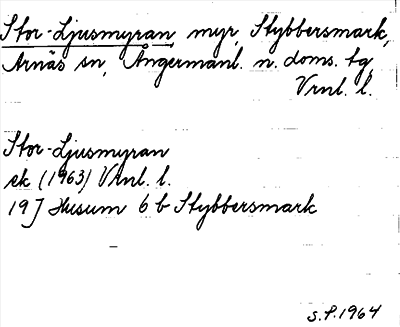 Stor-Ljusmyran, myr, Stybbersmark,
Arnäs sn, Ångermanl. n. doms. tg,
Vrnl. l.
Stor-Ljusmyran
ek (1963) Vrnl. l.
19 J Husum 6 b Stybbersmark
S.P. 1964